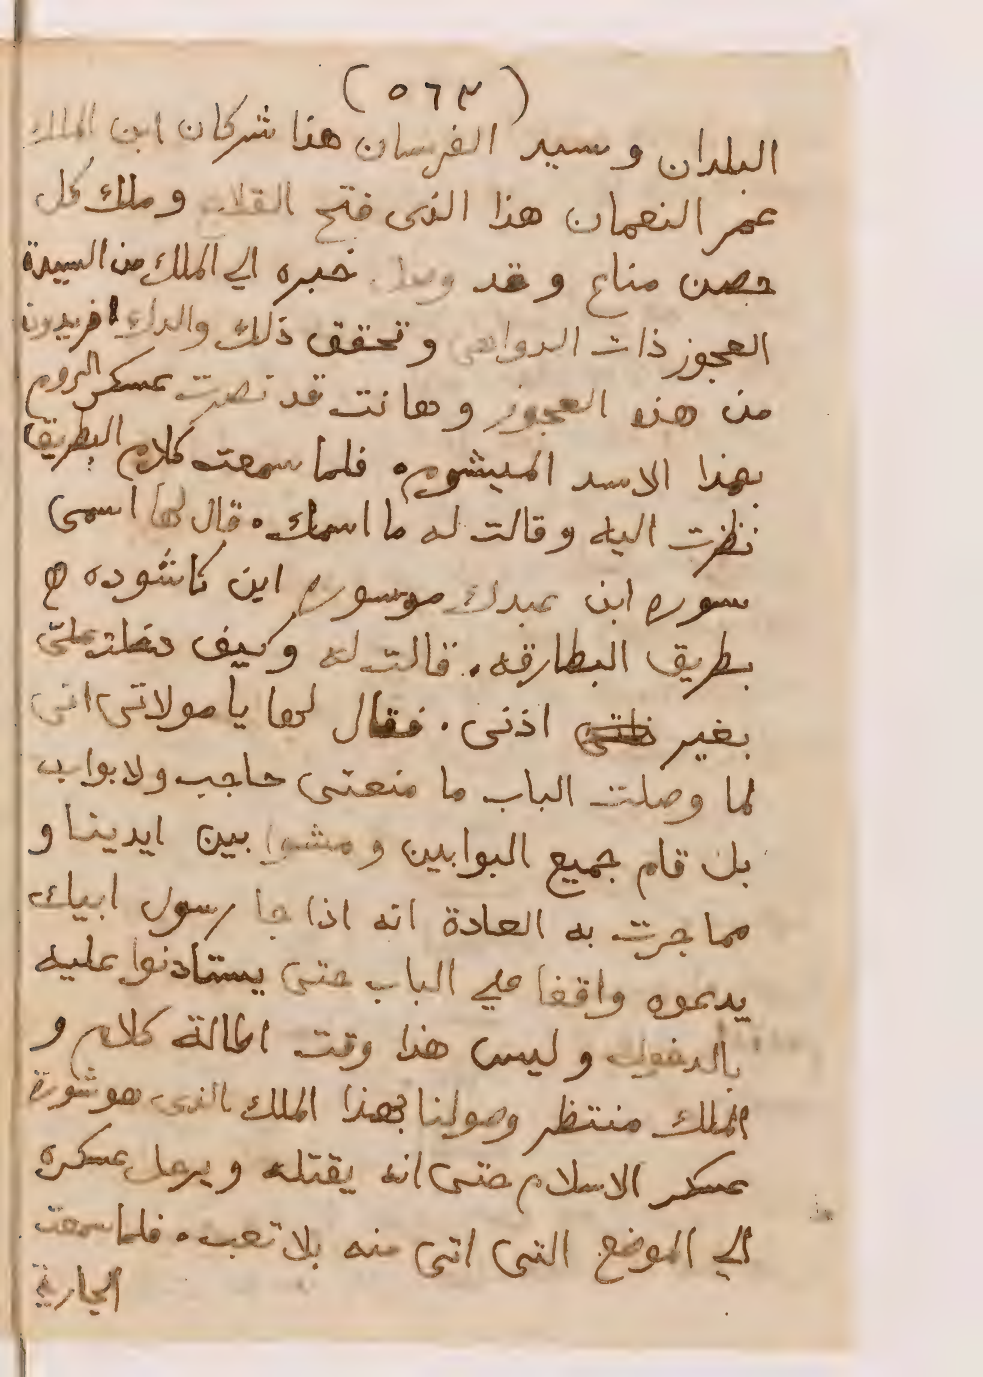 (٥٦٣)
البلدان وسيد الفرسان هذا شركان ابن الملك
عمر النعمان هذا الذى فتح القلاع وملك كل
حصن مناع وقد وصل خبره الى الملك من السيدة
العجوز ذات الدواهى وتحقق ذلك والدك افريدون
من هذه العجوز وها نت قد نصرت عسكر الروم
بهذا الاسد الميشوم. فلما سمعت كلام البطريق
نظرت اليه وقالت له ما اسمك. قال لها اسمى
سوره ابن عبدك موسوره ابن كاشوده
بطريق البطارقه. قالت له وكيف دخلت علىّ
بغير اذنى. فقال لها يا مولاتى انى
لما وصلت الباب ما منعنى حاجب ولا بواب
بل قام جميع البوابين ومشوا بين ايدينا و
مما جرت به العادة انه اذا جا رسول ابيك
يدعوه واقفا على الباب حتى يستادنوا عليه
بالدخول وليس هذا وقت اطالة كلام و
الملك منتظر وصولنا بهذا الملك الذى هو شورة
عسكر الاسلام حتى انه يقتله ويرحل عسكره
الى الموضع التى اتى منه بلا تعب. فلما سمعت
الجارية